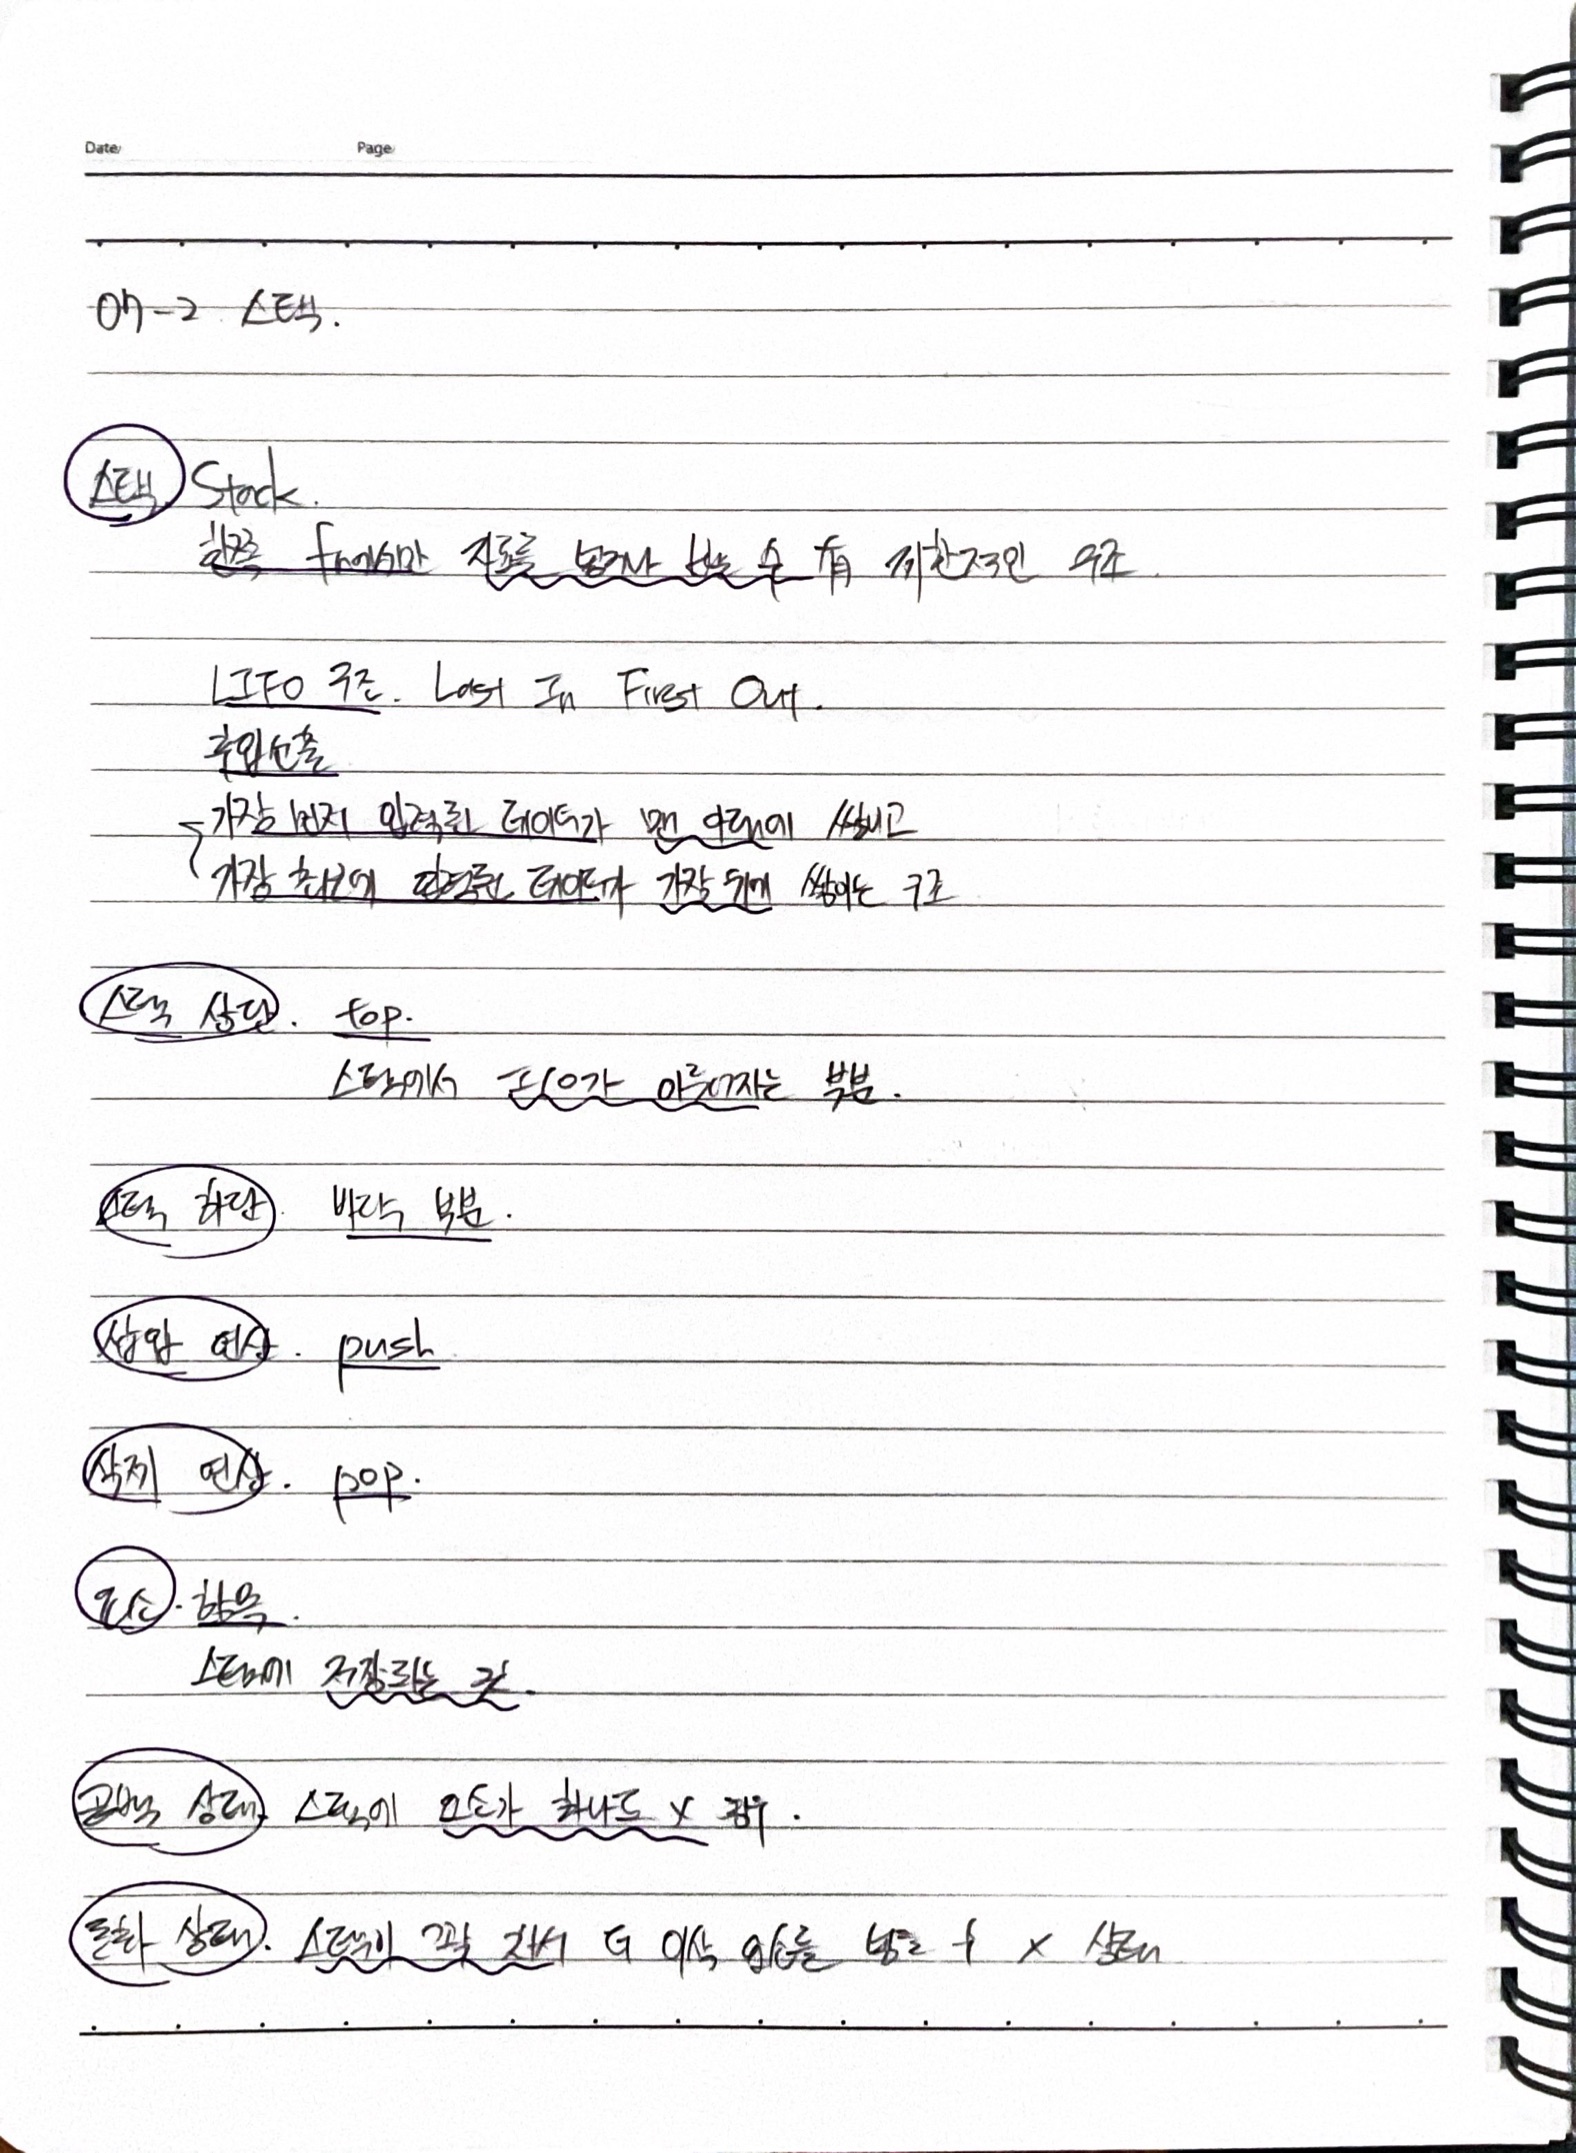 Date/ Page/
07-2 스택.
스택 Stack.
한쪽 fn에서만 자료를 넣거나 빼는 수 有 제한적인 구조.
LIFO 구조. Last In First Out.
후입선출
가장 먼저 입력된 데이터가 맨 아래에 쌓이고
가장 최근에 입력된 데이터가 가장 위에 쌓이는 구조
스택 상단. top.
스택에서 입출력가 이루어지는 부분.
스택 하단. 바닥 부분.
삽입 연산. push
삭제 연산. pop.
요소. 항목.
스택에 저장되는 것.
공백 상태. 스택에 요소가 하나도 x 경우.
포화 상태. 스택이 꽉 차서 더 이상 요소를 넣을 수 x 상태